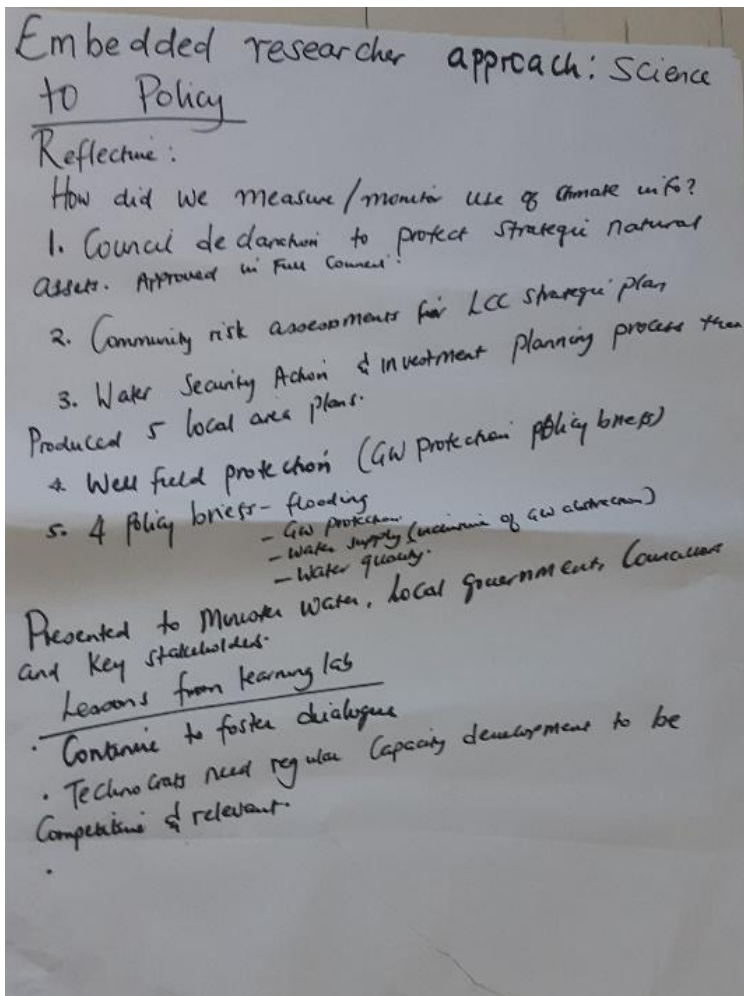 Embedded researcher approach: Science
to Policy
Reflective:
How did we measure/monitor use of climate info?
1. Council declaration to protect strategic natural
assets. Approved in Full Council.
2. Community risk assessments for LCC strategic plan
3. Water Security Action & investment planning process then
Produced 5 local area plans.
4. Well field protection (GW protection policy briefs)
5. 4 policy briefs - flooding
- GW protection
- Water supply ( of GW abstraction)
- Water quality.
Presented to Minister Water, Local government, Councillors
and Key stakeholders.
Lessons from learning lab
• Continue to foster dialogue
• Technocrats need regular Capacity development to be
Competitive & relevant.
•